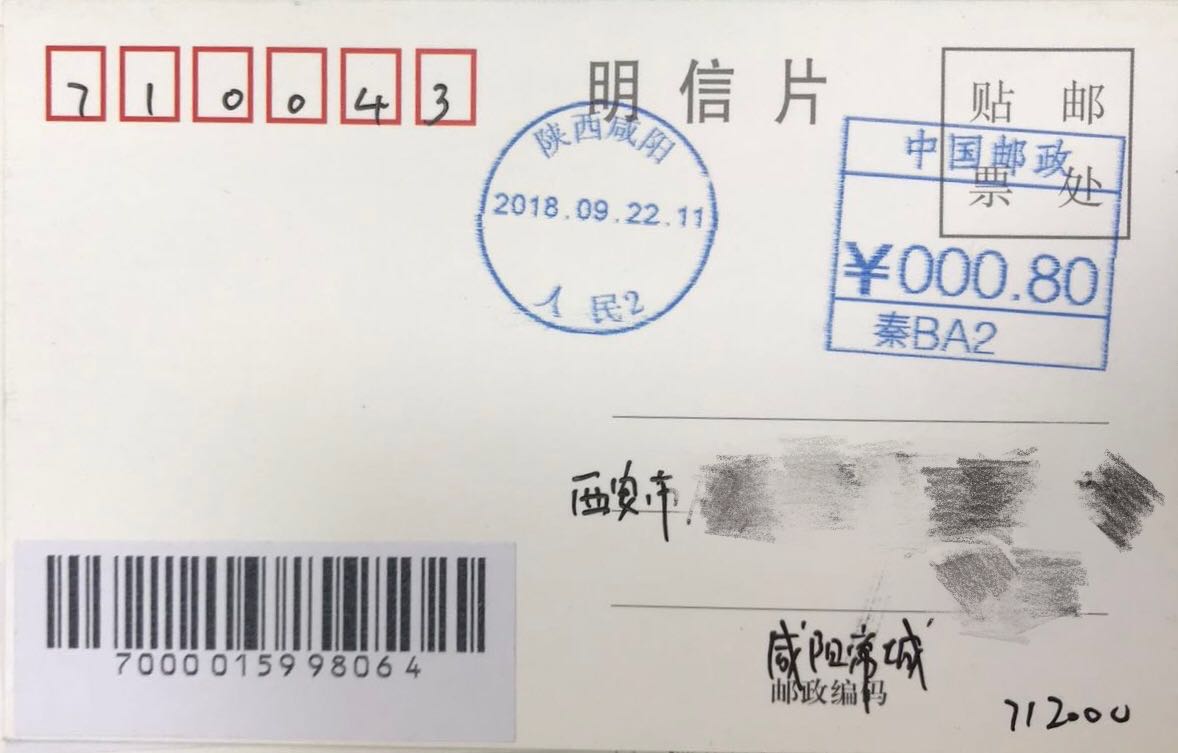 710043
明信片
贴邮
票处
陕西咸阳
2018.09.22.11
人民2
中国邮政
¥000.80
秦BA2
西安市
7000015998064
咸阳
邮政编码
712000